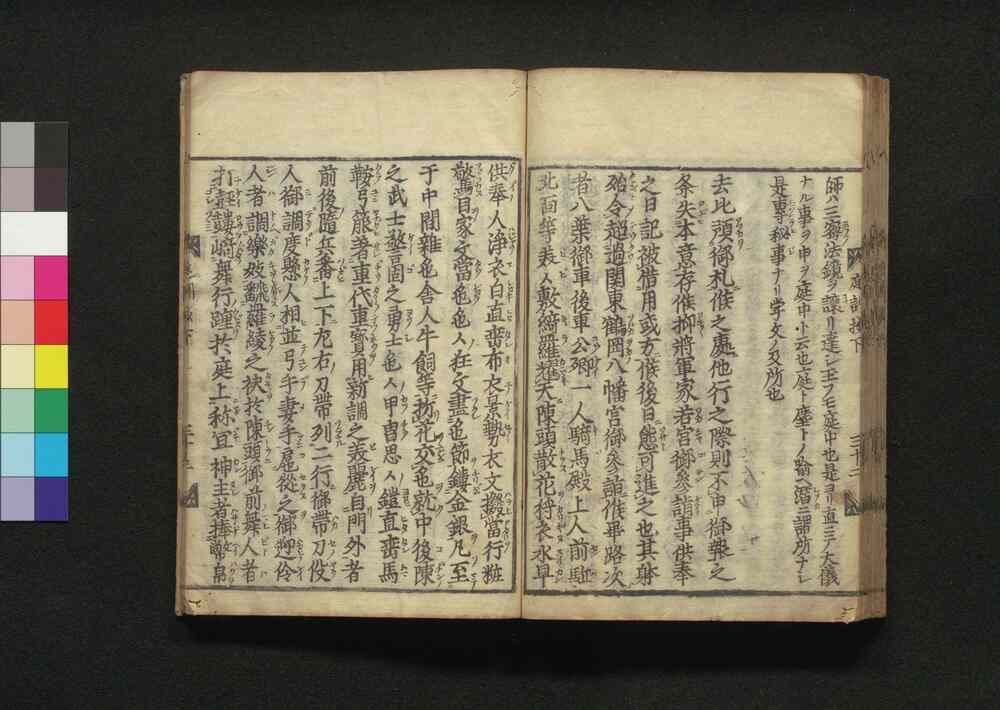 師ハ三密法鏡ヲ譲リ達シ玉フモ庭中也是ヨリ直ニ三ノ大儀
ナル事ヲ申ヲ庭中ト云也庭ト塵トノ二謂所ナシ
是専秘事ナリ学文ノ及所也
去比頃御札候之處他行之際則不申御報之
条失本意存候抑將軍家若宮御參詣事供奉
之日記被借用或方候後日態可進之也其躰
殆令超過関東鶴岡八幡宮御參詣候畢路次
者八葉御車後車公卿一人騎馬殿上人前駈
北面等表人敷綺羅耀天陳頭散花狩衣水旱
供奉人淨衣白直垂布衣景勢衣文撥當行粧
驚目家々當色色人狂文畫色節鏤金銀凡至
于中間雜色舎人牛飼等抜花交色就中後陳
之武士警固之勇士色人甲冑思人鎧直垂馬
鞍弓箙著重代重寳用新調之美麗自門外者
前後隨兵番上下左右刀帶列二行御帶刀伇
人御調度懸人相並弓手妻手扈從之御迎伶
人者調樂妓飜羅綾之袂於陳頭御前舞人者
打舞行蹕於庭上称宜神主者捧幣帛
庭訓抄下
三十二